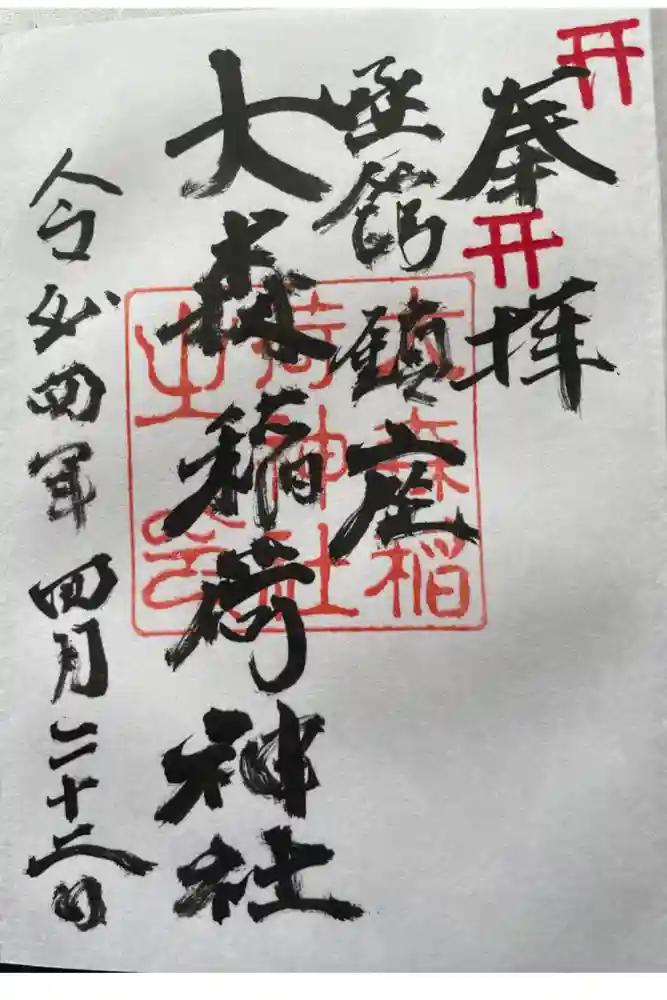 奉拝
函館鎮座
大森稲荷神社
令和四年四月二十二日
大森稲
荷神社
之印